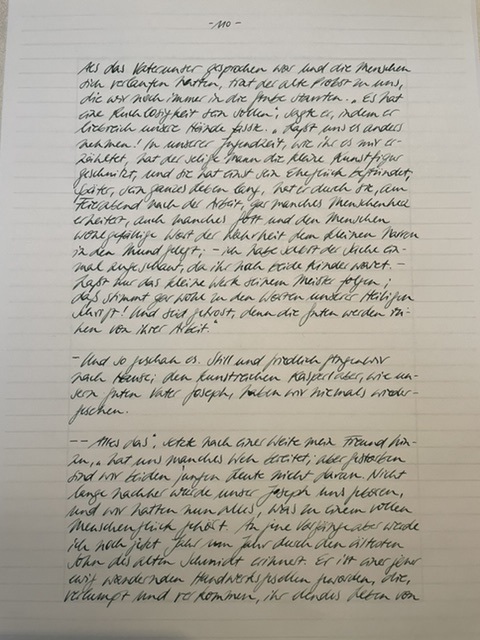 -110-
Als das Vaterunser gesprochen war und die Menschen
sich verlaufen hatten, trat der alte Probst zu uns,
die wir noch immer in die Grube starrten. „Es hat
eine Ruchlosigkeit sein sollen", sagte er, indem er
liebreich unsere Hände fasste. „Laßt uns es anders
nehmen! In unserer Jugendzeit, wie ihr es mir er-
zähltet, hat der selige Mann die kleine Kunstfigur
geschnitzt, und sie hat einst sein Eheglück begründet;
später, sein ganzes Leben lang, hat er durch sie, am
Feierabend nach der Arbeit, gar manches Menschenherz
erheitert, auch manches Gott und den Menschen
wohlgefällige Wort der Wahrheit dem kleinen Narren
in den Mund gelegt; – ich habe selbst der Sache ein-
mal zugeschaut, da ihr noch beide Kinder waret. –
Laßt nur das kleine Werk seinem Meister folgen;
das stimmt gar wohl zu den Worten unserer Heiligen
Schrift! Und seid getrost, denn die Guten werden ru-
hen von ihrer Arbeit."
– Und so geschah es. Still und friedlich gingen wir
nach Hause; den kunstreichen Kasperl aber, wie un-
sern guten Vater Joseph, haben wir niemals wieder-
gesehen.
– – Alles das", setzte nach einer Weile mein Freund hin-
zu, „hat uns manches Weh bereitet; aber gestorben
sind wir beiden jungen Leute nicht daran. Nicht
lange nachher wurde unser Joseph uns geboren,
und wir hatten nun alles, was zu einem vollen
Menschenglück gehört. An jene Vorgänge aber werde
ich noch jetzt Jahr um Jahr durch den ältesten
Sohn des alten Schmidt erinnert. Er ist einer jener
ewig wandernden Handwerksgesellen geworden, die,
verlumpt und verkommen, ihr elendes Leben von